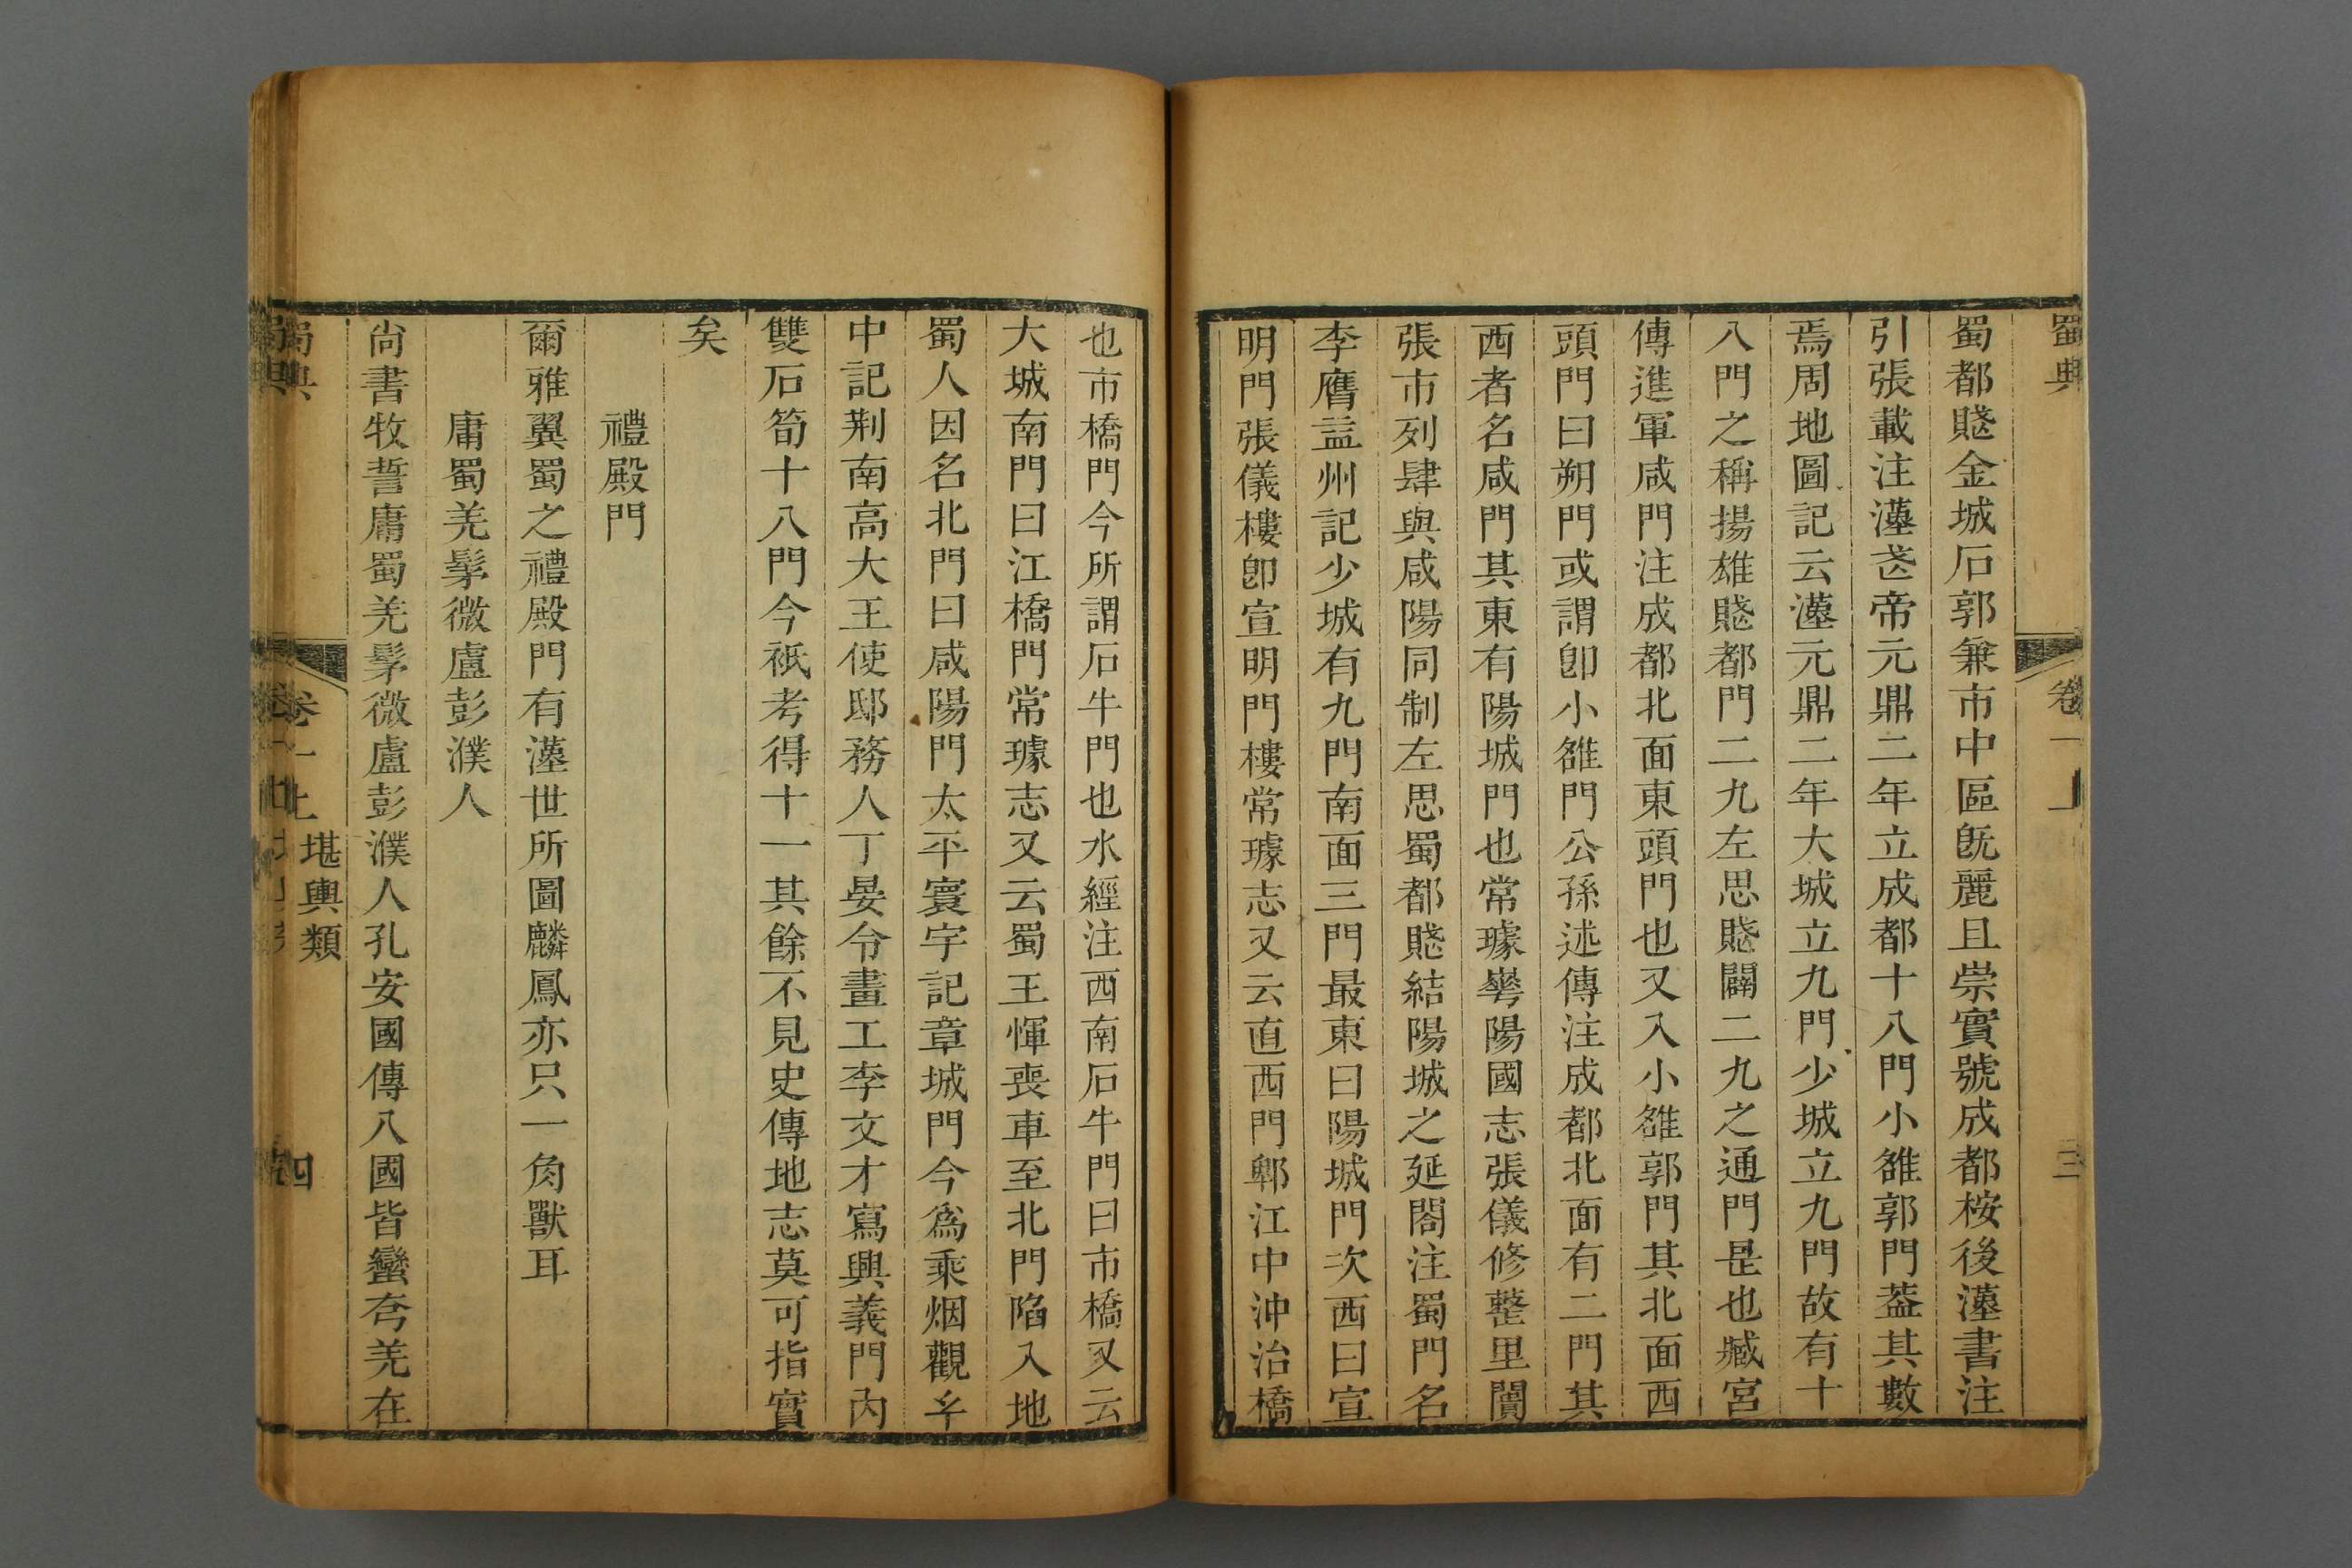 蜀典
卷一上
三
蜀都賦金城石郭兼市中區旣麗且崇實號成都桉後漢書注
引張載注漢武帝元鼎二年立成都十八門小雒郭門葢其數
焉周地圖記云漢元鼎二年大城立九門少城立九門故有十
八門之稱揚雄賦都門二九左思賦闢二九之通門是也臧宮
傳進軍咸門注成都北面東頭門也又入小雒郭門其北面西
頭門曰朔門或謂卽小雒門公孫述傳注成都北面有二門其
西者名咸門其東有陽城門也常璩華陽國志張儀修整里闠
張市列肆與咸陽同制左思蜀都賦結陽城之延閣注蜀門名
李膺益州記少城有九門南面三門最東曰陽城門次西曰宣
明門張儀樓卽宣明門樓常璩志又云直西門郫江中沖治橋
也市橋門今所謂石牛門也水經注西南石牛門曰市橋又云
大城南門曰江橋門常璩志又云蜀王惲喪車至北門陷入地
蜀人因名北門曰咸陽門太平寰宇記章城門今爲乘烟觀乎
中記荆南高大王使邸務人丁晏令畫工李文才寫興義門內
雙石筍十八門今祇考得十一其餘不見史傳地志莫可指實
矣
禮殿門
爾雅翼蜀之禮殿門有漢世所圖麟鳳亦只一角獸耳
庸蜀羌髳微盧彭濮人
尙書牧誓庸蜀羌髳微盧彭濮人孔安國傳八國皆蠻夸羌在
蜀典
卷一上
堪輿類
四